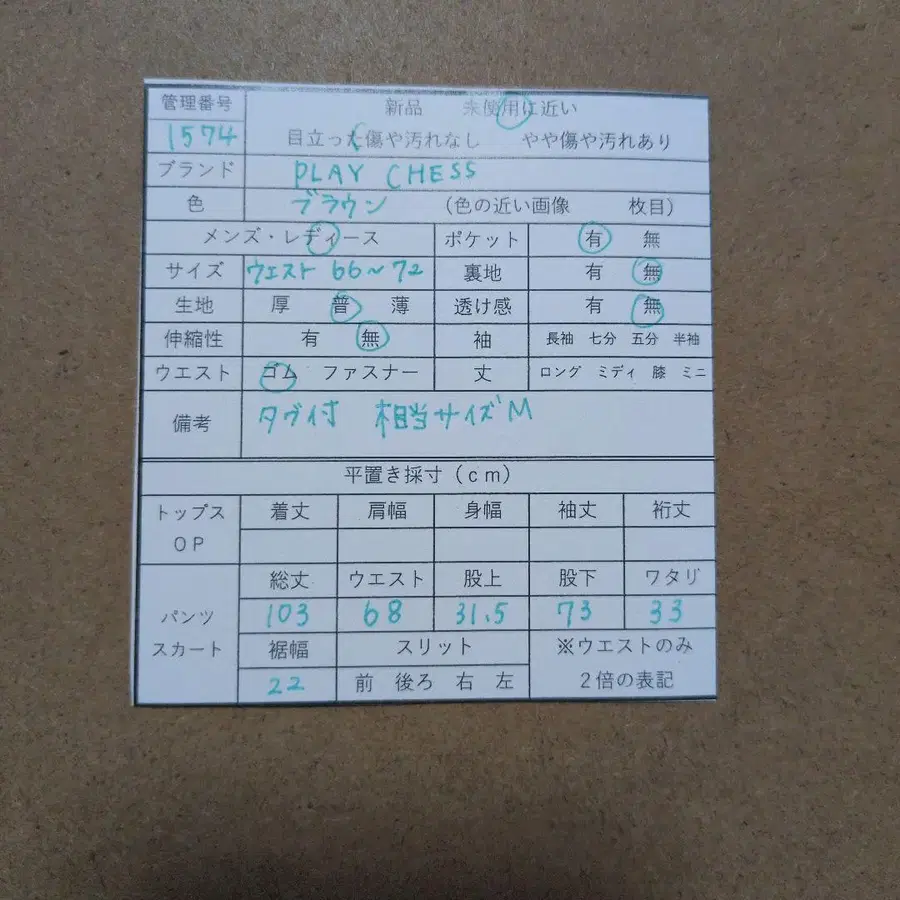 管理番号 新品 未使用に近い
1574 目立った傷や汚れなし やや傷や汚れあり
ブランド PLAY CHESS
色 ブラウン (色の近い画像 枚目)
メンズ・レディース ポケット 有 無
サイズ ウエスト 66~72 裏地 有 無
生地 厚 普 薄 透け感 有 無
伸縮性 有 無 袖 長袖 七分 五分 半袖
ウエスト ゴム ファスナー 丈 ロング ミディ 膝 ミニ
備考 タグ付 相当サイズM
平置き採寸(cm)
トップス 着丈 肩幅 身幅 袖丈 裄丈
OP
総丈 ウエスト 股上 股下 ワタリ
パンツ 103 68 31.5 73 33
スカート 裾幅 スリット ※ウエストのみ
22 前 後ろ 右 左 2倍の表記